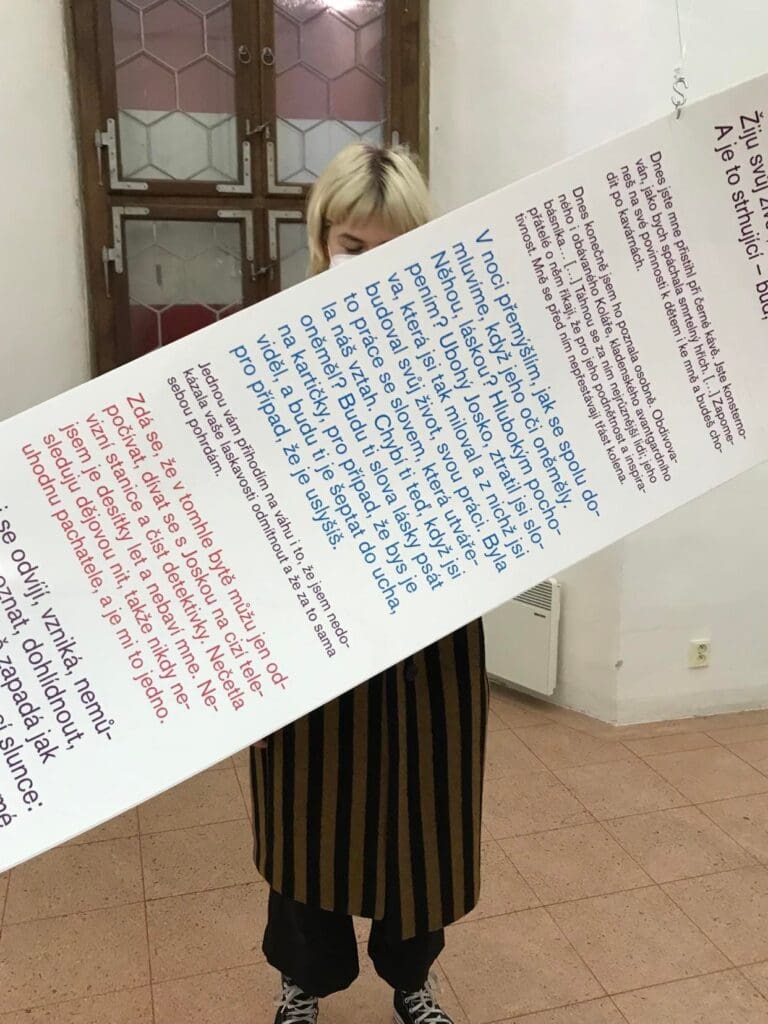 Žiju svůj
A je to strhující – buď
Dnes jste mne přistihl při černé kávě. Jste konsterno-
ván, jako bych spáchala smrtelný hřích. [...] Zapome-
neš na své povinnosti k dětem i ke mně a budeš cho-
dit po kavárnách.
Dnes konečně jsem ho poznala osobně. Obdivova-
ného i obávaného Koláře, kladenského avantgardního
básníka... [...] Táhnou se za ním nejrůznější lidi; jeho
přátelé o něm říkají, že pro jeho podnětnost a inspira-
tivnost. Mně se před ním nepřestávají třást kolena.
V noci přemýšlím, jak se spolu do-
mluvíme, když jeho oči oněměly.
Něhou, láskou? Hlubokým pocho-
pením? Ubohý Josko, ztratil jsi slo-
va, která jsi tak miloval a z nichž jsi
budoval svůj život, svou práci. Byla
to práce se slovem, která utváře-
la náš vztah. Chybí ti teď, když jsi
oněměl? Budu ti slova lásky psát
na kartičky, pro případ, že bys je
viděl, a budu ti je šeptat do ucha,
pro případ, že je uslyšíš.
Jednou vám přihodím na váhu i to, že jsem nedo-
kázala vaše laskavosti odmítnout a že za to sama
sebou pohrdám.
Zdá se, že v tomhle bytě můžu jen od-
počívat, dívat se s Joskou na cizí tele-
vizní stanice a číst detektivky. Nečetla
jsem je desítky let a nebaví mne. Ne-
sleduju dějovou nit, takže nikdy ne-
uhodnu pachatele, a je mi to jedno.
i se odvíjí, vzniká, nemů-
oznat, dohlídnout,
zapadá jak
cí slunce:
mé